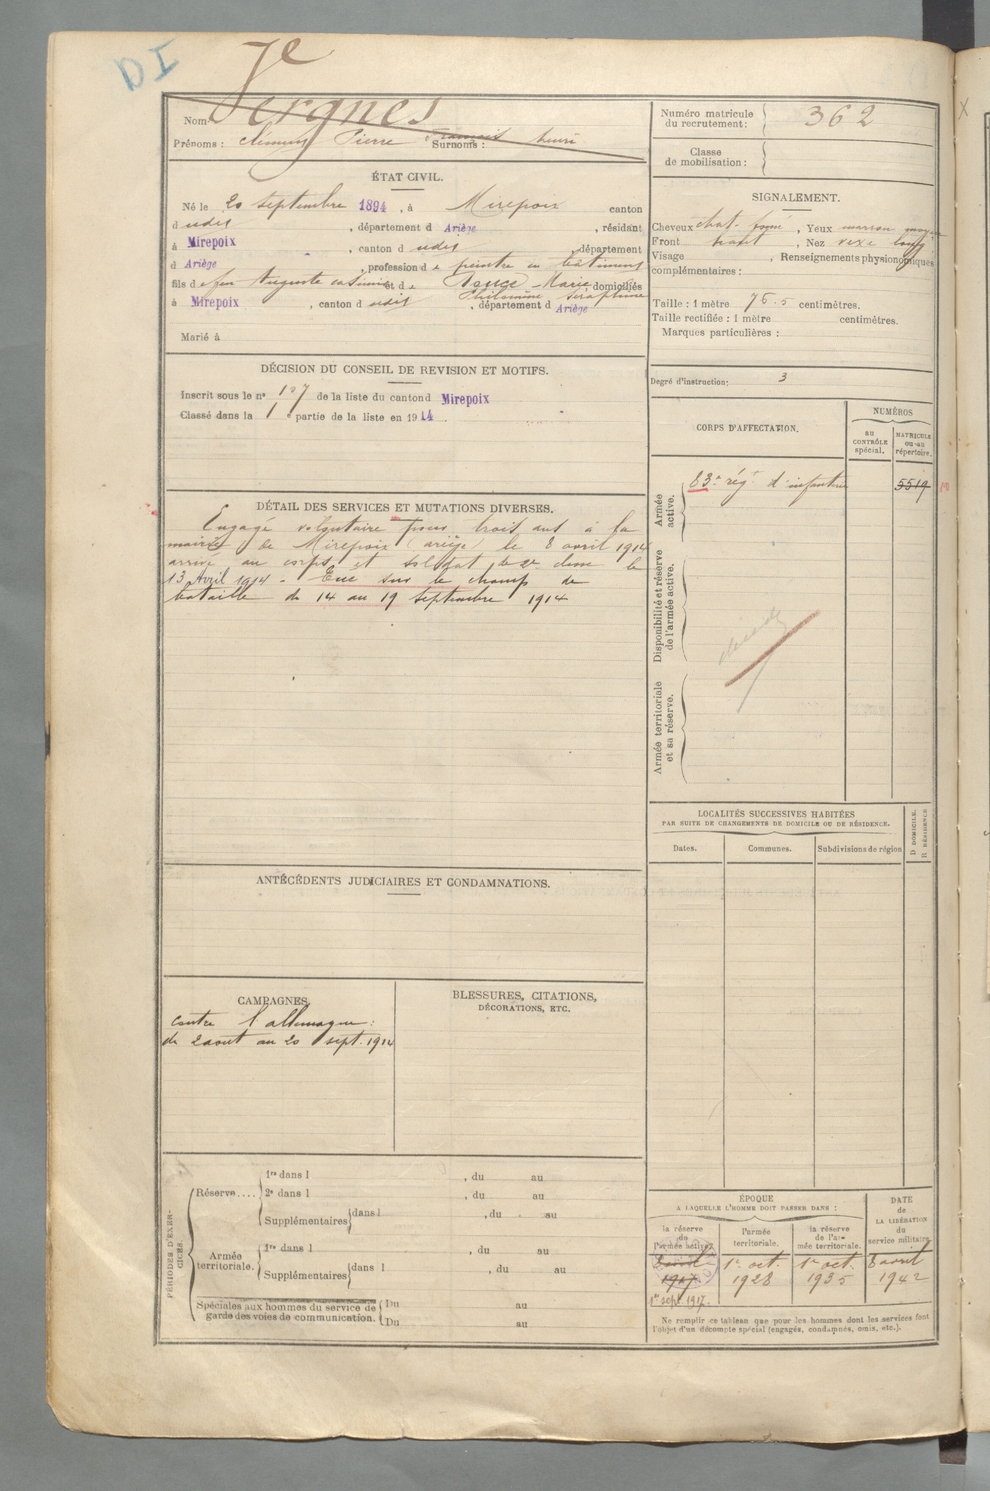 DI
Je
Nom Vergnes
Prénoms : Clément Pierre François Henri
Surnoms :
ÉTAT CIVIL.
Né le 20 septembre 1894, à Mirepoix canton
d udit, département d Ariège, résidant
à Mirepoix, canton d udit, département
d Ariège, profession d e peintre en bâtiments
fils d e feu Auguste Casimir et d e Marie domiciliés
Philomène Séraphine
à Mirepoix, canton d udit, département d Ariège
Marié à
DÉCISION DU CONSEIL DE REVISION ET MOTIFS.
Inscrit sous le n° 107 de la liste du canton d Mirepoix
Classé dans la 1 partie de la liste en 1914
DÉTAIL DES SERVICES ET MUTATIONS DIVERSES.
Engagé volontaire pour trois ans à la
mairie de Mirepoix (ariège) le 8 avril 1914
arrivé au corps et soldat de 2e classe le
13 Avril 1914 - Tué sur le champ de
bataille du 14 au 19 septembre 1914
ANTÉCÉDENTS JUDICIAIRES ET CONDAMNATIONS.
CAMPAGNES.
contre l'allemagne :
du 2 aout au 20 sept. 1914
BLESSURES, CITATIONS,
DÉCORATIONS, ETC.
PÉRIODES D'EXERCICES.
Réserve....
1re dans l , du au
2e dans l , du au
Supplémentaires dans l , du au
Armée territoriale.
1re dans l , du au
Supplémentaires dans l , du au
Spéciales aux hommes du service de
garde des voies de communication.
Du au
Du au
Numéro matricule
du recrutement : 362
Classe
de mobilisation :
SIGNALEMENT.
Cheveux chat. foncé, Yeux marron moyen
Front haut, Nez vexe long
Visage , Renseignements physionomiques
complémentaires :
Taille : 1 mètre 75.5 centimètres.
Taille rectifiée : 1 mètre centimètres.
Marques particulières :
Degré d'instruction : 3
CORPS D'AFFECTATION.
NUMÉROS
au
CONTRÔLE
spécial.
MATRICULE
ou au
répertoire.
Armée
active.
83e régt d'infanterie
5519
Disponibilité et réserve
de l'armée active.
décédé
Armée territoriale
et sa réserve.
LOCALITÉS SUCCESSIVES HABITÉES
PAR SUITE DE CHANGEMENTS DE DOMICILE OU DE RÉSIDENCE.
Dates.
Communes.
Subdivisions de région
D. DOMICILE.
R. RÉSIDENCE
ÉPOQUE
A LAQUELLE L'HOMME DOIT PASSER DANS :
la réserve
de
l'armée active.
l'armée
territoriale.
la réserve
de l'armée territoriale.
DATE
de
LA LIBÉRATION
du
service militaire
8 avril
1917
1er sept. 1917.
1er oct.
1928
1er oct.
1935
8 avril
1942
Ne remplir ce tableau que pour les hommes dont les services font
l'objet d'un décompte spécial (engagés, condamnés, omis, etc.).